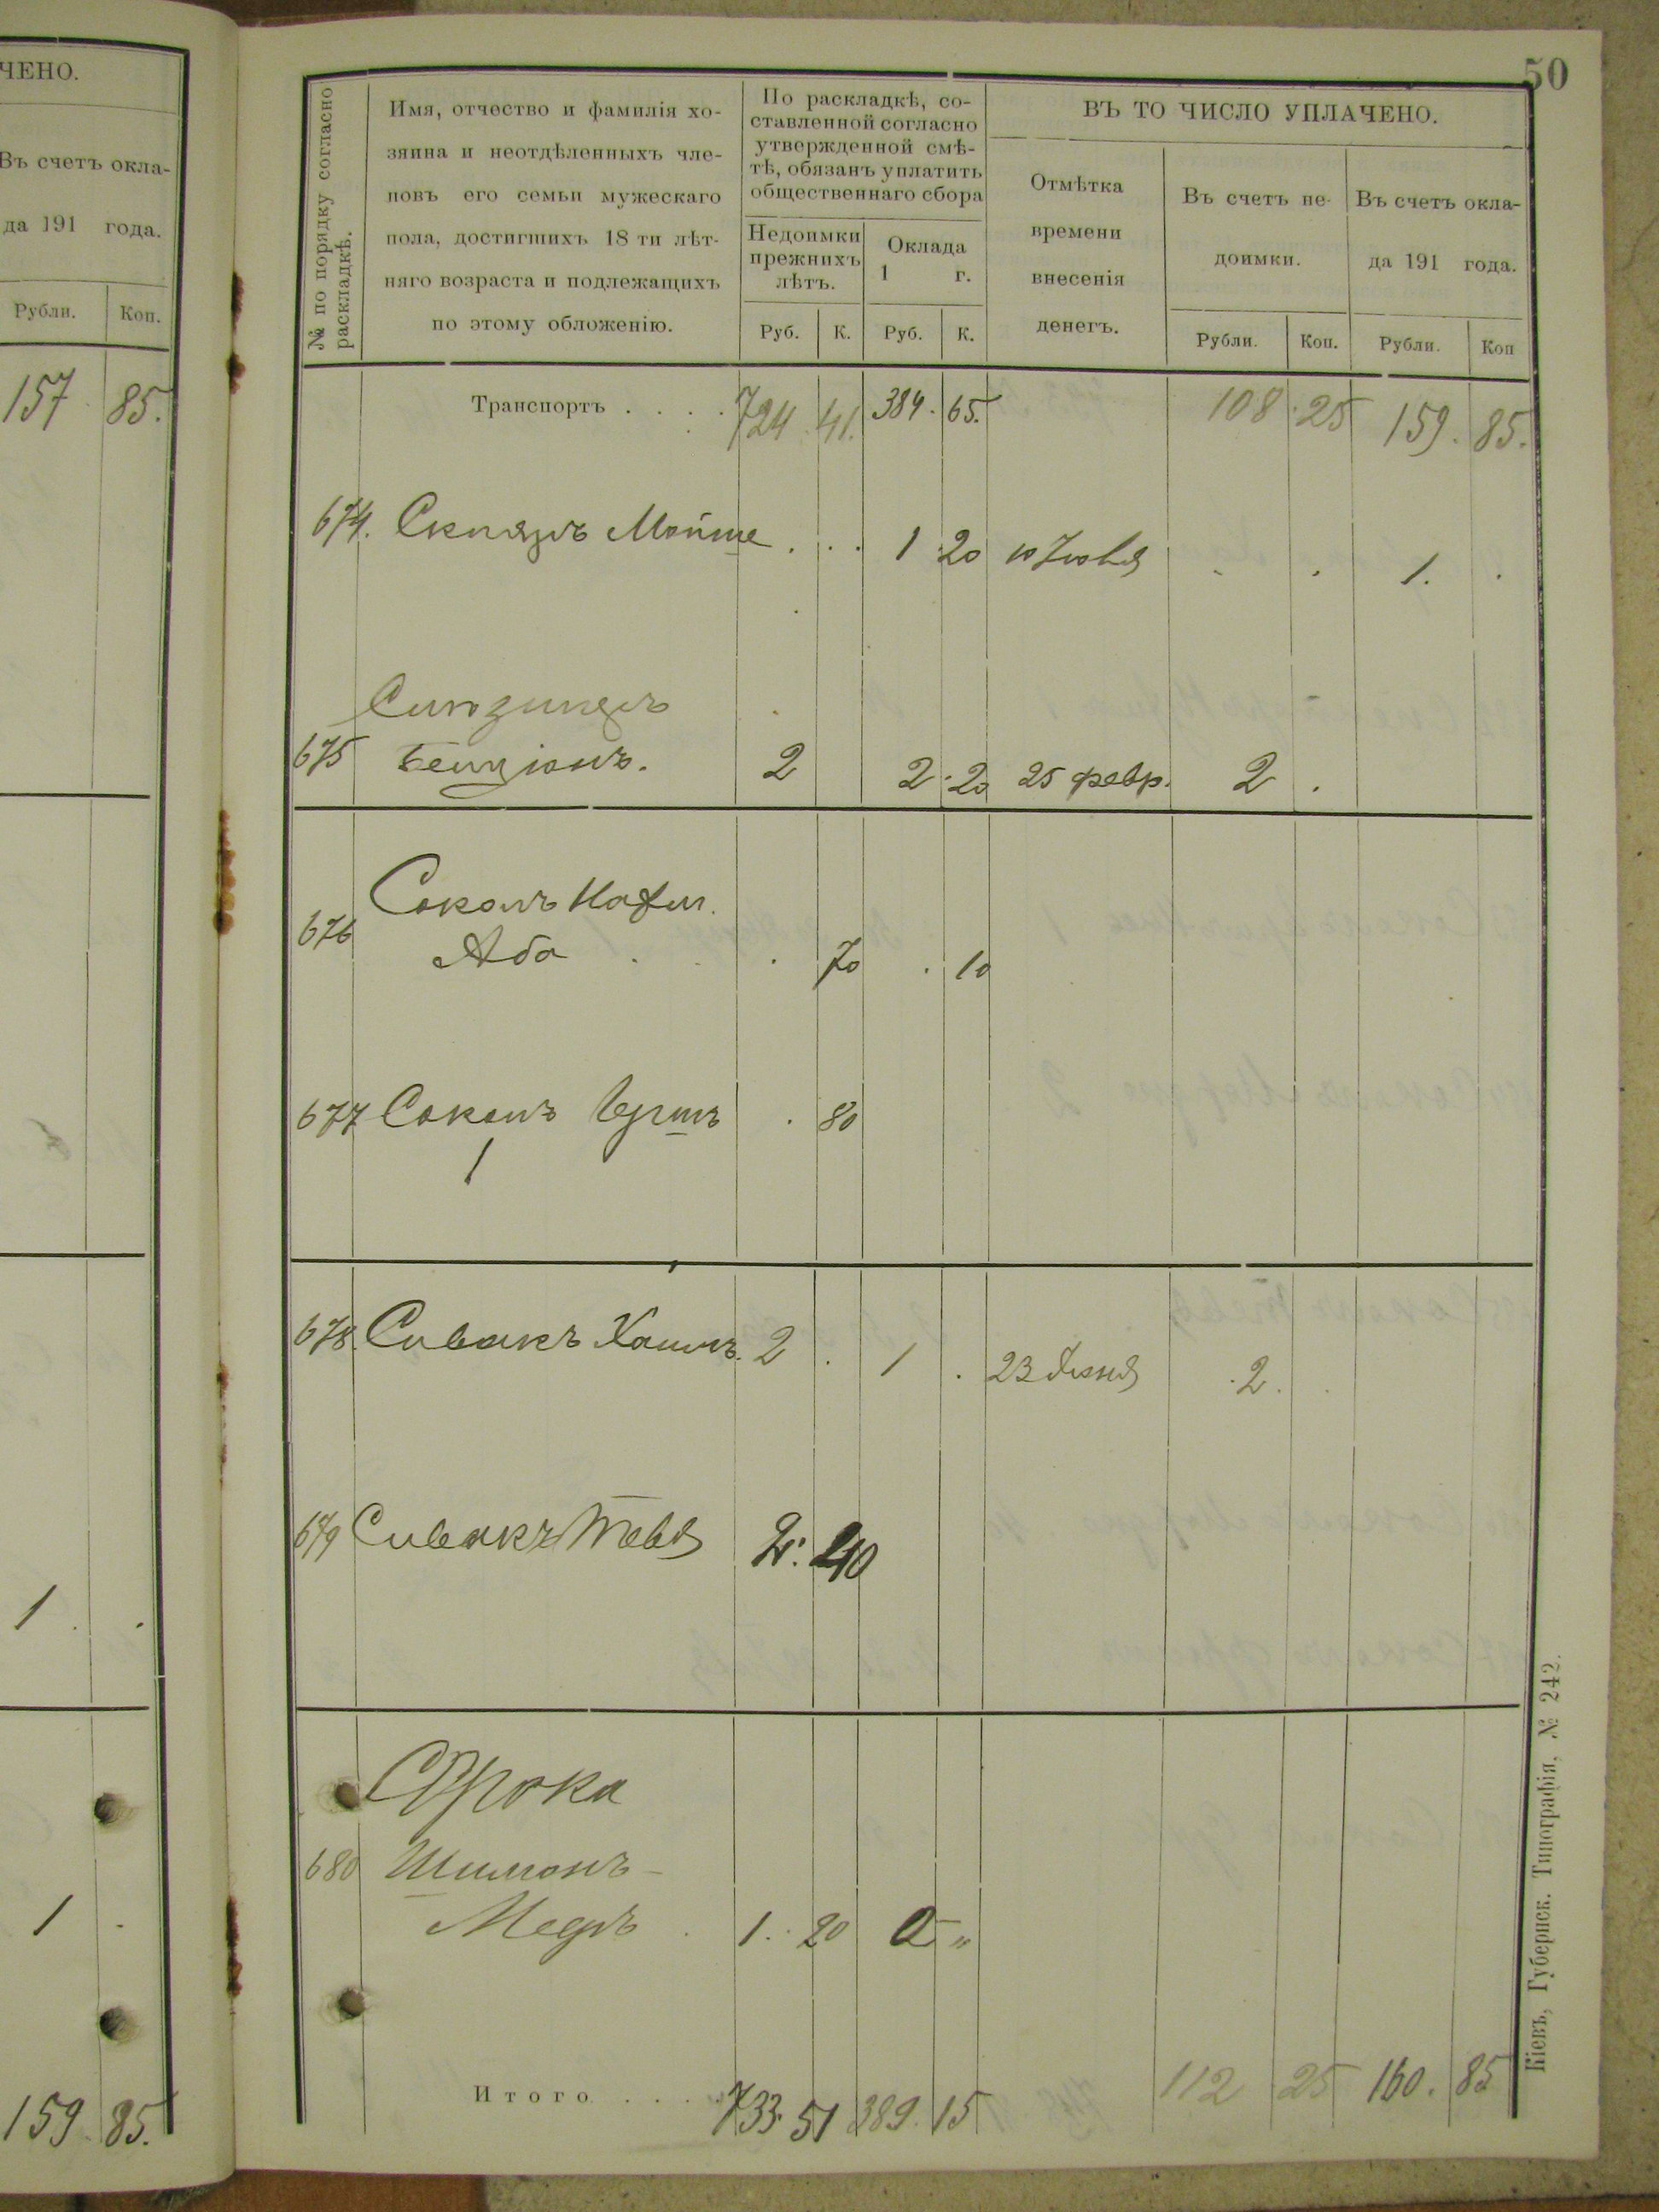 ЧЕНО.
Въ счетъ окла-
да 191 года.
Рубли. Коп.
157 85.
1 .
1 .
159. 85.
50
№ по порядку согласно
раскладкѣ.
Имя, отчество и фамилія хо-
зяина и неотдѣленныхъ чле-
новъ его семьи мужескаго
пола, достигшихъ 18 ти лѣт-
няго возраста и подлежащихъ
по этому обложенію.
По раскладкѣ, со-
ставленной согласно
утвержденной смѣ-
тѣ, обязанъ уплатить
общественнаго сбора
Недоимки
прежнихъ
лѣтъ.
Оклада
1 г.
Руб. К. Руб. К.
ВЪ ТО ЧИСЛО УПЛАЧЕНО.
Отмѣтка
времени
внесенія
денегъ.
Въ счетъ не-
доимки.
Въ счетъ окла-
да 191 года.
Рубли. Коп. Рубли. Коп
Транспортъ . . . . 724 41. 384. 65. 108 25 159. 85.
674. Мойше . . . 1 20 10 Іюля . . 1. .
675 Бенціонъ. 2 2 20 25 февр. 2 .
Соколъ Нафт.
676 Аба . . . 70 . 10
677 Соколъ Гершъ . 80
1
678. Сивакъ Хаимъ. 2 . 1 . 23 Іюня 2. .
679 Сивакъ Тевя 2. 40
Сорока
680 Шимонъ-
Мееръ . 1. 20 „
Итого . . . . 733. 51 389. 15 112 25 160. 85
Кіевъ, Губернск. Типографія, № 242.